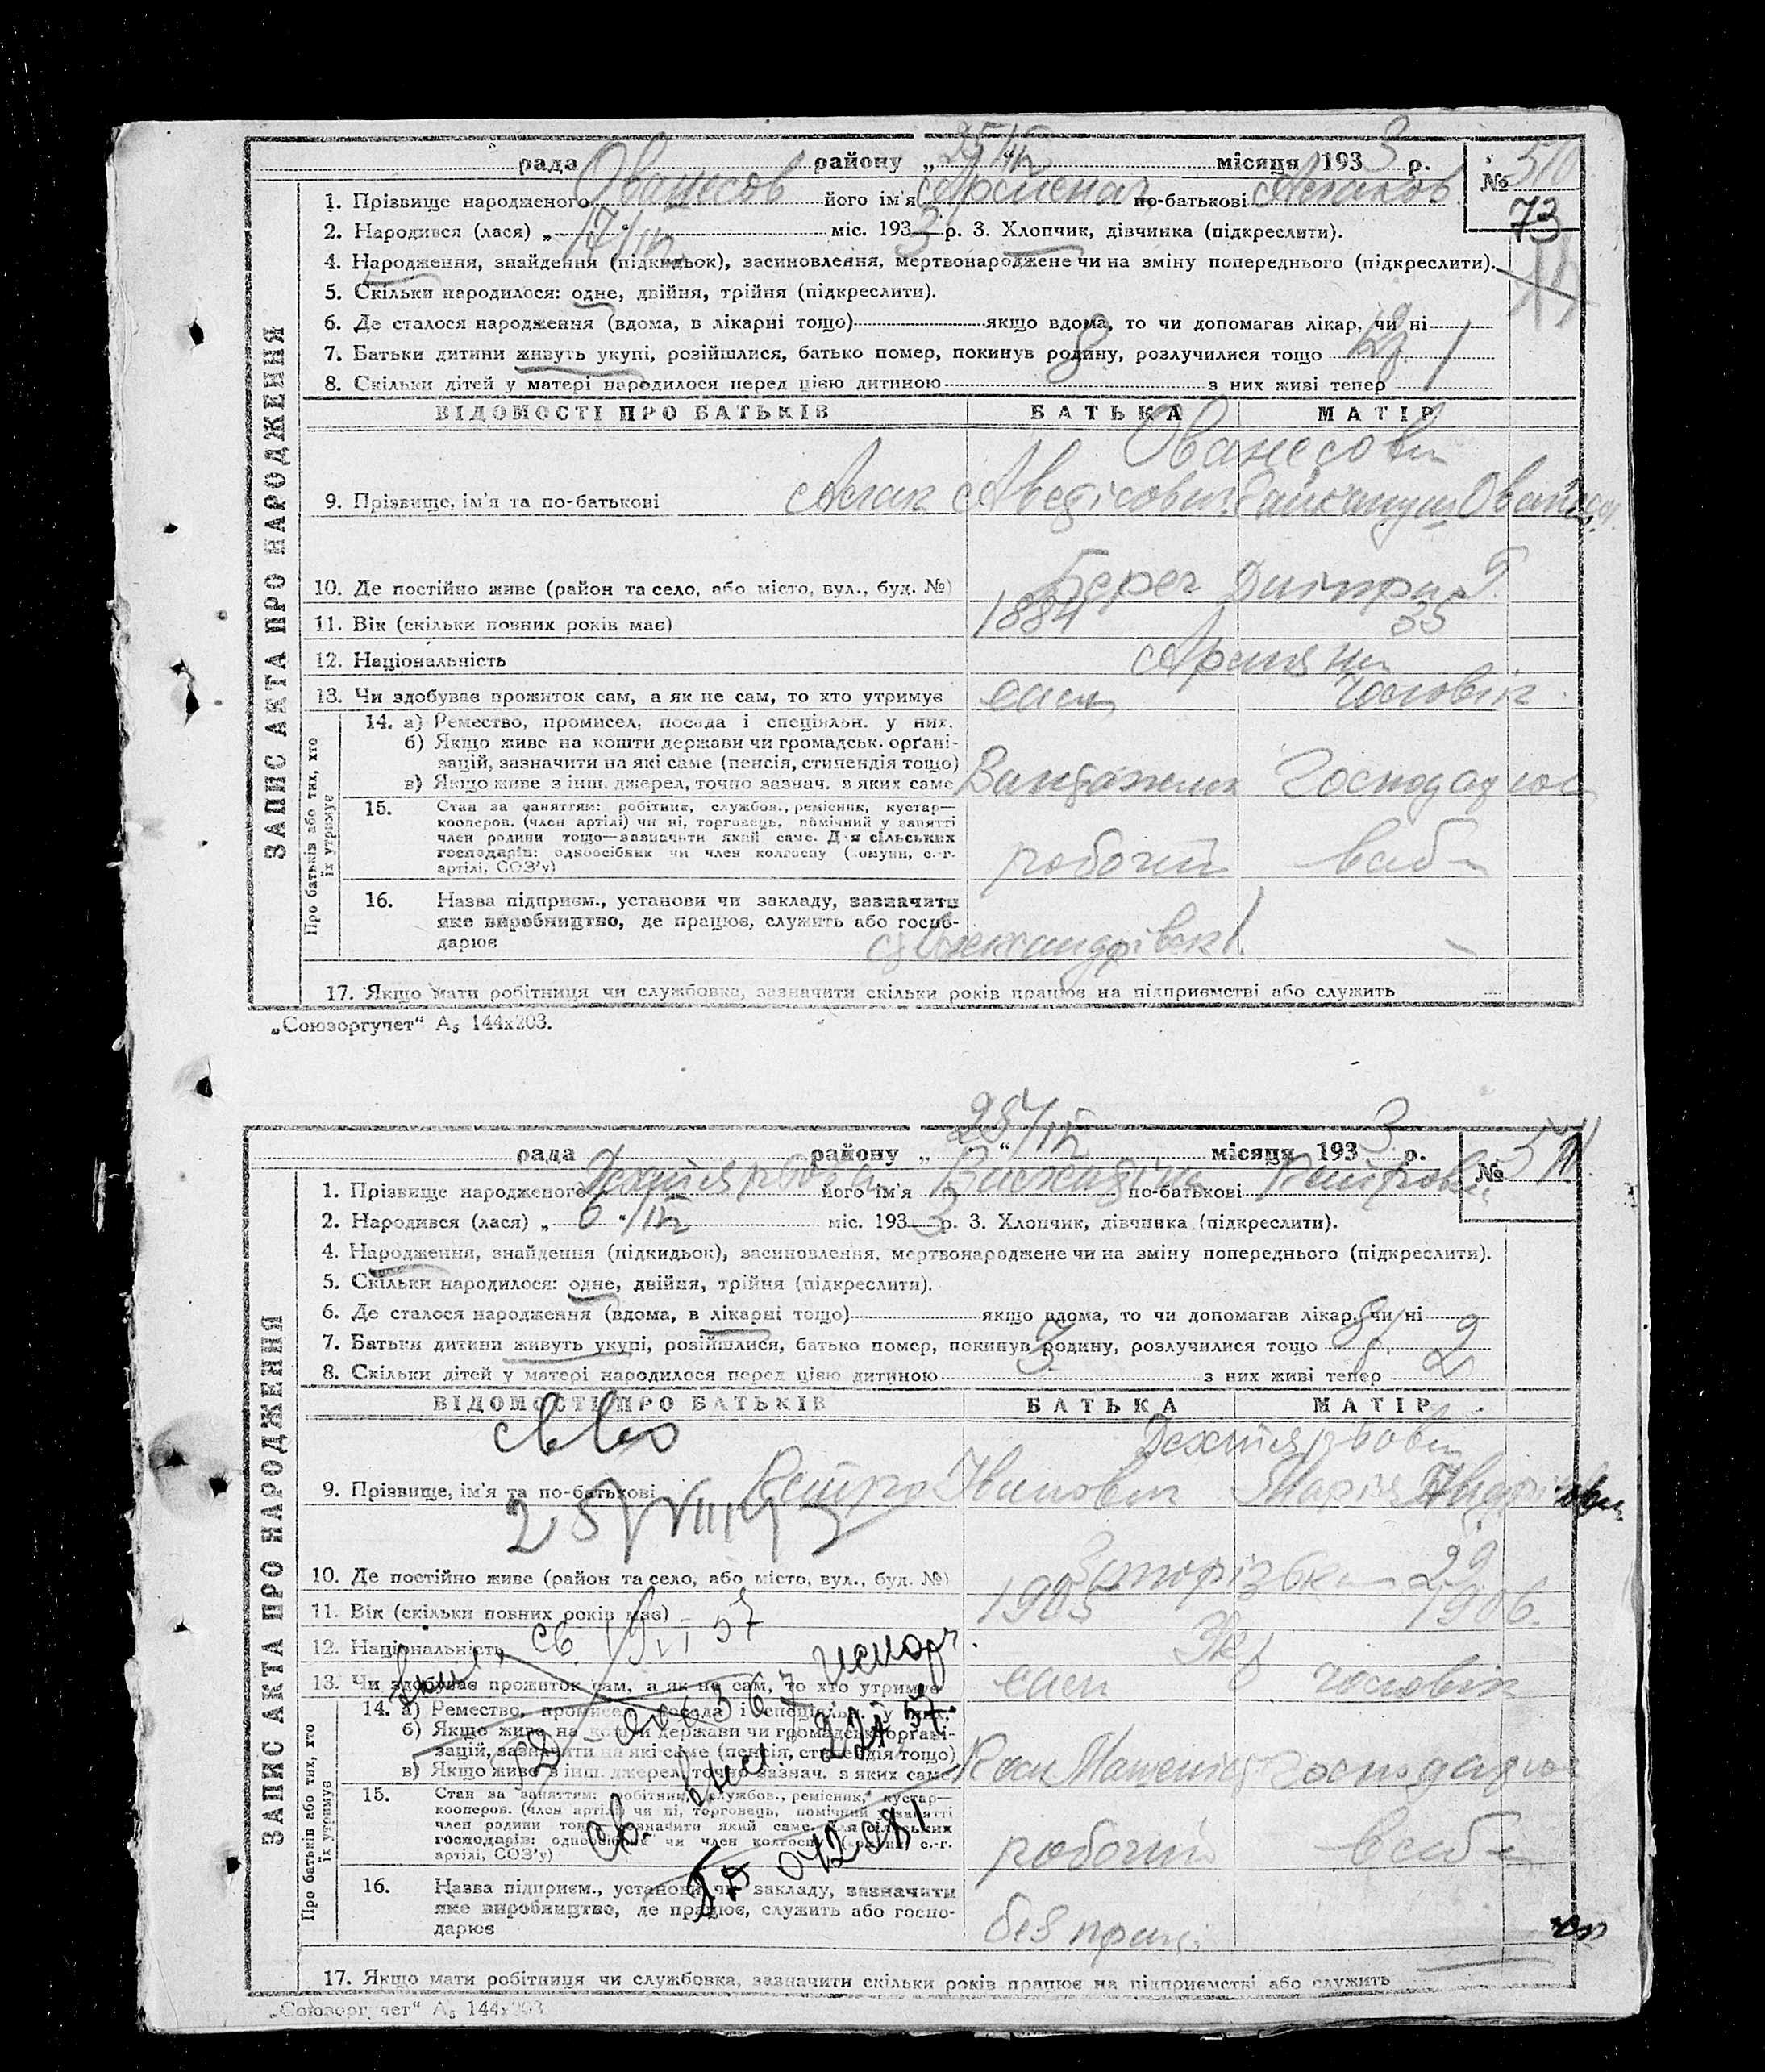 рада району „ 25/IV “ місяця 1933 р.
№ 510
73
1. Прізвище народженого Ованесов його ім'я Арменак по-батькові Аслаков
2. Народився (лася) „ 17/IV “ міс. 1933 р. 3. Хлопчик, дівчинка (підкреслити).
4. Народження, знайдення (підкидьок), засиновлення, мертвонароджене чи на зміну попереднього (підкреслити).
5. Скільки народилося: одне, двійня, трійня (підкреслити).
6. Де сталося народження (вдома, в лікарні тощо) якщо вдома, то чи допомагав лікар, чи ні
7. Батьки дитини живуть укупі, розійшлися, батько помер, покинув родину, розлучилися тощо
8. Скільки дітей у матері народилося перед цією дитиною 8 з них живі тепер 1
ЗАПИС АКТА ПРО НАРОДЖЕННЯ
ВІДОМОСТІ ПРО БАТЬКІВ БАТЬКА МАТІР
Ованесови
9. Прізвище, ім'я та по-батькові Аслак Аведісович Гайкануш Ованесов.
10. Де постійно живе (район та село, або місто, вул., буд. №) Берег Дніпра 9
11. Вік (скільки повних років має) 1884 35
12. Національність Армяни
13. Чи здобуває прожиток сам, а як не сам, то хто утримує сам чоловік
Про батьків або тих, хто їх утримує
14. а) Ремество, промисел, посада і спеціяльн. у них.
б) Якщо живе на кошти держави чи громадськ. орґані-
зацій, зазначити на які саме (пенсія, стипендія тощо)
в) Якщо живе з інш. джерел, точно зазнач. з яких саме Вантажник Господарює
15. Стан за заняттям: робітник, службов., ремісник, кустар—
кооперов. (член артілі) чи ні, торговець, помічний у занятті
член родини тощо—зазначити який саме. Для сільських
господарів: одноосібник чи член колгоспу (комуни, с.-г.
артілі, СОЗ'у) робочий
16. Назва підприєм., установи чи закладу, зазначити
яке виробництво, де працює, служить або госпо-
дарює Олександрівськ
17. Якщо мати робітниця чи службовка, зазначити скільки років працює на підприємстві або служить
„Союзоргучет“ А₅ 144х203.
рада району „ 25/IV “ місяця 1933 р.
№ 511
1. Прізвище народженого Дехтярьова його ім'я по-батькові Петровна
2. Народився (лася) „ 6 “ /IV міс. 1933 р. 3. Хлопчик, дівчинка (підкреслити).
4. Народження, знайдення (підкидьок), засиновлення, мертвонароджене чи на зміну попереднього (підкреслити).
5. Скільки народилося: одне, двійня, трійня (підкреслити).
6. Де сталося народження (вдома, в лікарні тощо) якщо вдома, то чи допомагав лікар, чи ні
7. Батьки дитини живуть укупі, розійшлися, батько помер, покинув родину, розлучилися тощо
8. Скільки дітей у матері народилося перед цією дитиною 3 з них живі тепер 2
ЗАПИС АКТА ПРО НАРОДЖЕННЯ
ВІДОМОСТІ ПРО БАТЬКІВ БАТЬКА МАТІР
Дехтярьови
9. Прізвище, ім'я та по-батькові Петро Іванович Марія Андріївна
10. Де постійно живе (район та село, або місто, вул., буд. №) Запорізька 29
11. Вік (скільки повних років має) 1905 1906
12. Національність Укр
13. Чи здобуває прожиток сам, а як не сам, то хто утримує сам чоловік
Про батьків або тих, хто їх утримує
14. а) Ремество, промисел, посада і спеціяльн. у них.
б) Якщо живе на кошти держави чи громадськ. орґані-
зацій, зазначити на які саме (пенсія, стипендія тощо)
в) Якщо живе з інш. джерел, точно зазнач. з яких саме Господарює
15. Стан за заняттям: робітник, службов., ремісник, кустар—
кооперов. (член артілі) чи ні, торговець, помічний у занятті
член родини тощо—зазначити який саме. Для сільських
господарів: одноосібник чи член колгоспу (комуни, с.-г.
артілі, СОЗ'у) робочий
16. Назва підприєм., установи чи закладу, зазначити
яке виробництво, де працює, служить або госпо-
дарює без праці
17. Якщо мати робітниця чи службовка, зазначити скільки років працює на підприємстві або служить
„Союзоргучет“ А₅ 144х203